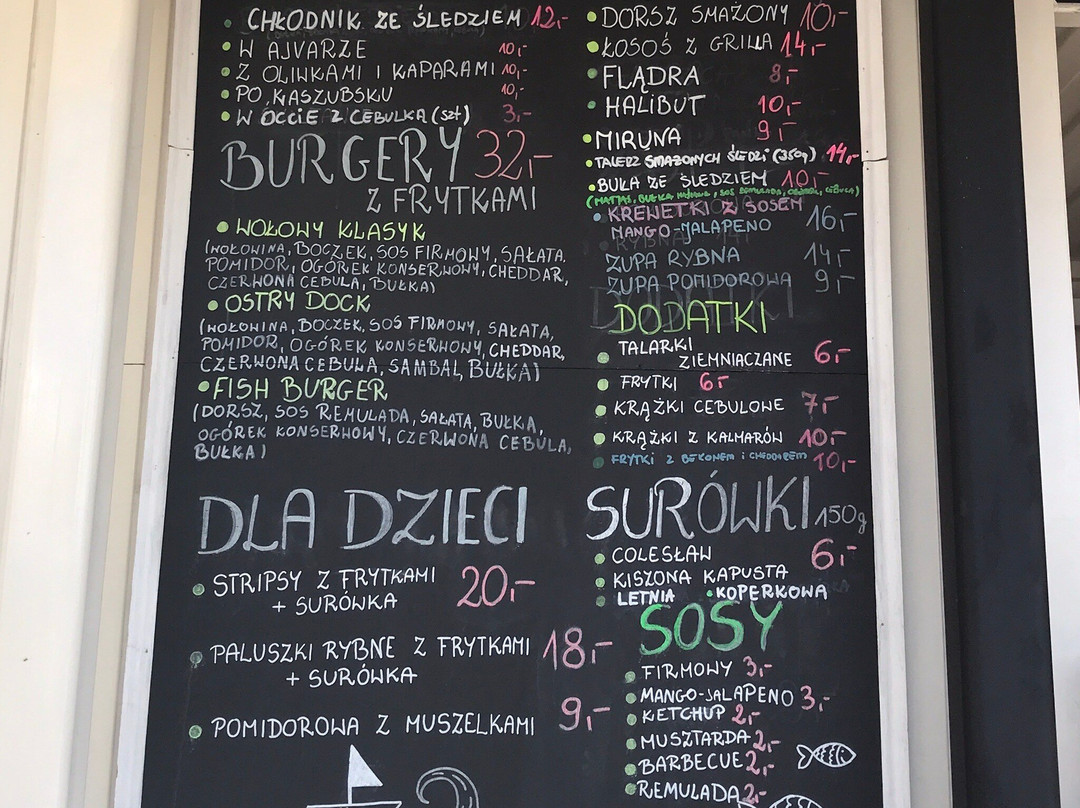 CHŁODNIK ZE ŚLEDZIEM 12,-
W AJVARZE 10,-
Z OLIWKAMI I KAPARAMI 10,-
PO KASZUBSKU 10,-
W OCCIE Z CEBULKĄ (szt) 3,-
BURGERY 32,-
Z FRYTKAMI
WOŁOWY KLASYK
(WOŁOWINA, BOCZEK, SOS FIRMOWY, SAŁATA,
POMIDOR, OGÓREK KONSERWOWY, CHEDDAR,
CZERWONA CEBULA, BUŁKA)
OSTRY DOCK
(WOŁOWINA, BOCZEK, SOS FIRMOWY, SAŁATA,
POMIDOR, OGÓREK KONSERWOWY, CHEDDAR,
CZERWONA CEBULA, SAMBAL, BUŁKA)
FISH BURGER
(DORSZ, SOS REMULADA, SAŁATA, BUŁKA,
OGÓREK KONSERWOWY, CZERWONA CEBULA,
BUŁKA)
DLA DZIECI
STRIPSY Z FRYTKAMI 20,-
+ SURÓWKA
PALUSZKI RYBNE Z FRYTKAMI 18,-
+ SURÓWKA
POMIDOROWA Z MUSZELKAMI 9,-
DORSZ SMAŻONY 10,-
ŁOSOŚ Z GRILLA 14,-
FLĄDRA 8,-
HALIBUT 10,-
MIRUNA 9,-
TALERZ SMAŻONYCH ŚLEDZI (350g) 14,-
BUŁA ZE ŚLEDZIEM 10,-
KREWETKI Z SOSEM
MANGO-JALAPENO 16,-
ZUPA RYBNA 14,-
ZUPA POMIDOROWA 9,-
DODATKI
TALARKI
ZIEMNIACZANE 6,-
FRYTKI 6,-
KRĄŻKI CEBULOWE 7,-
KRĄŻKI Z KALMARÓW 10,-
FRYTKI Z BEKONEM I CHEDDAREM 10,-
SURÓWKI 150g
COLESŁAW 6,-
KISZONA KAPUSTA
LETNIA • KOPERKOWA
SOSY
FIRMOWY 3,-
MANGO-JALAPENO 3,-
KETCHUP 2,-
MUSZTARDA 2,-
BARBECUE 2,-
REMULADA 2,-